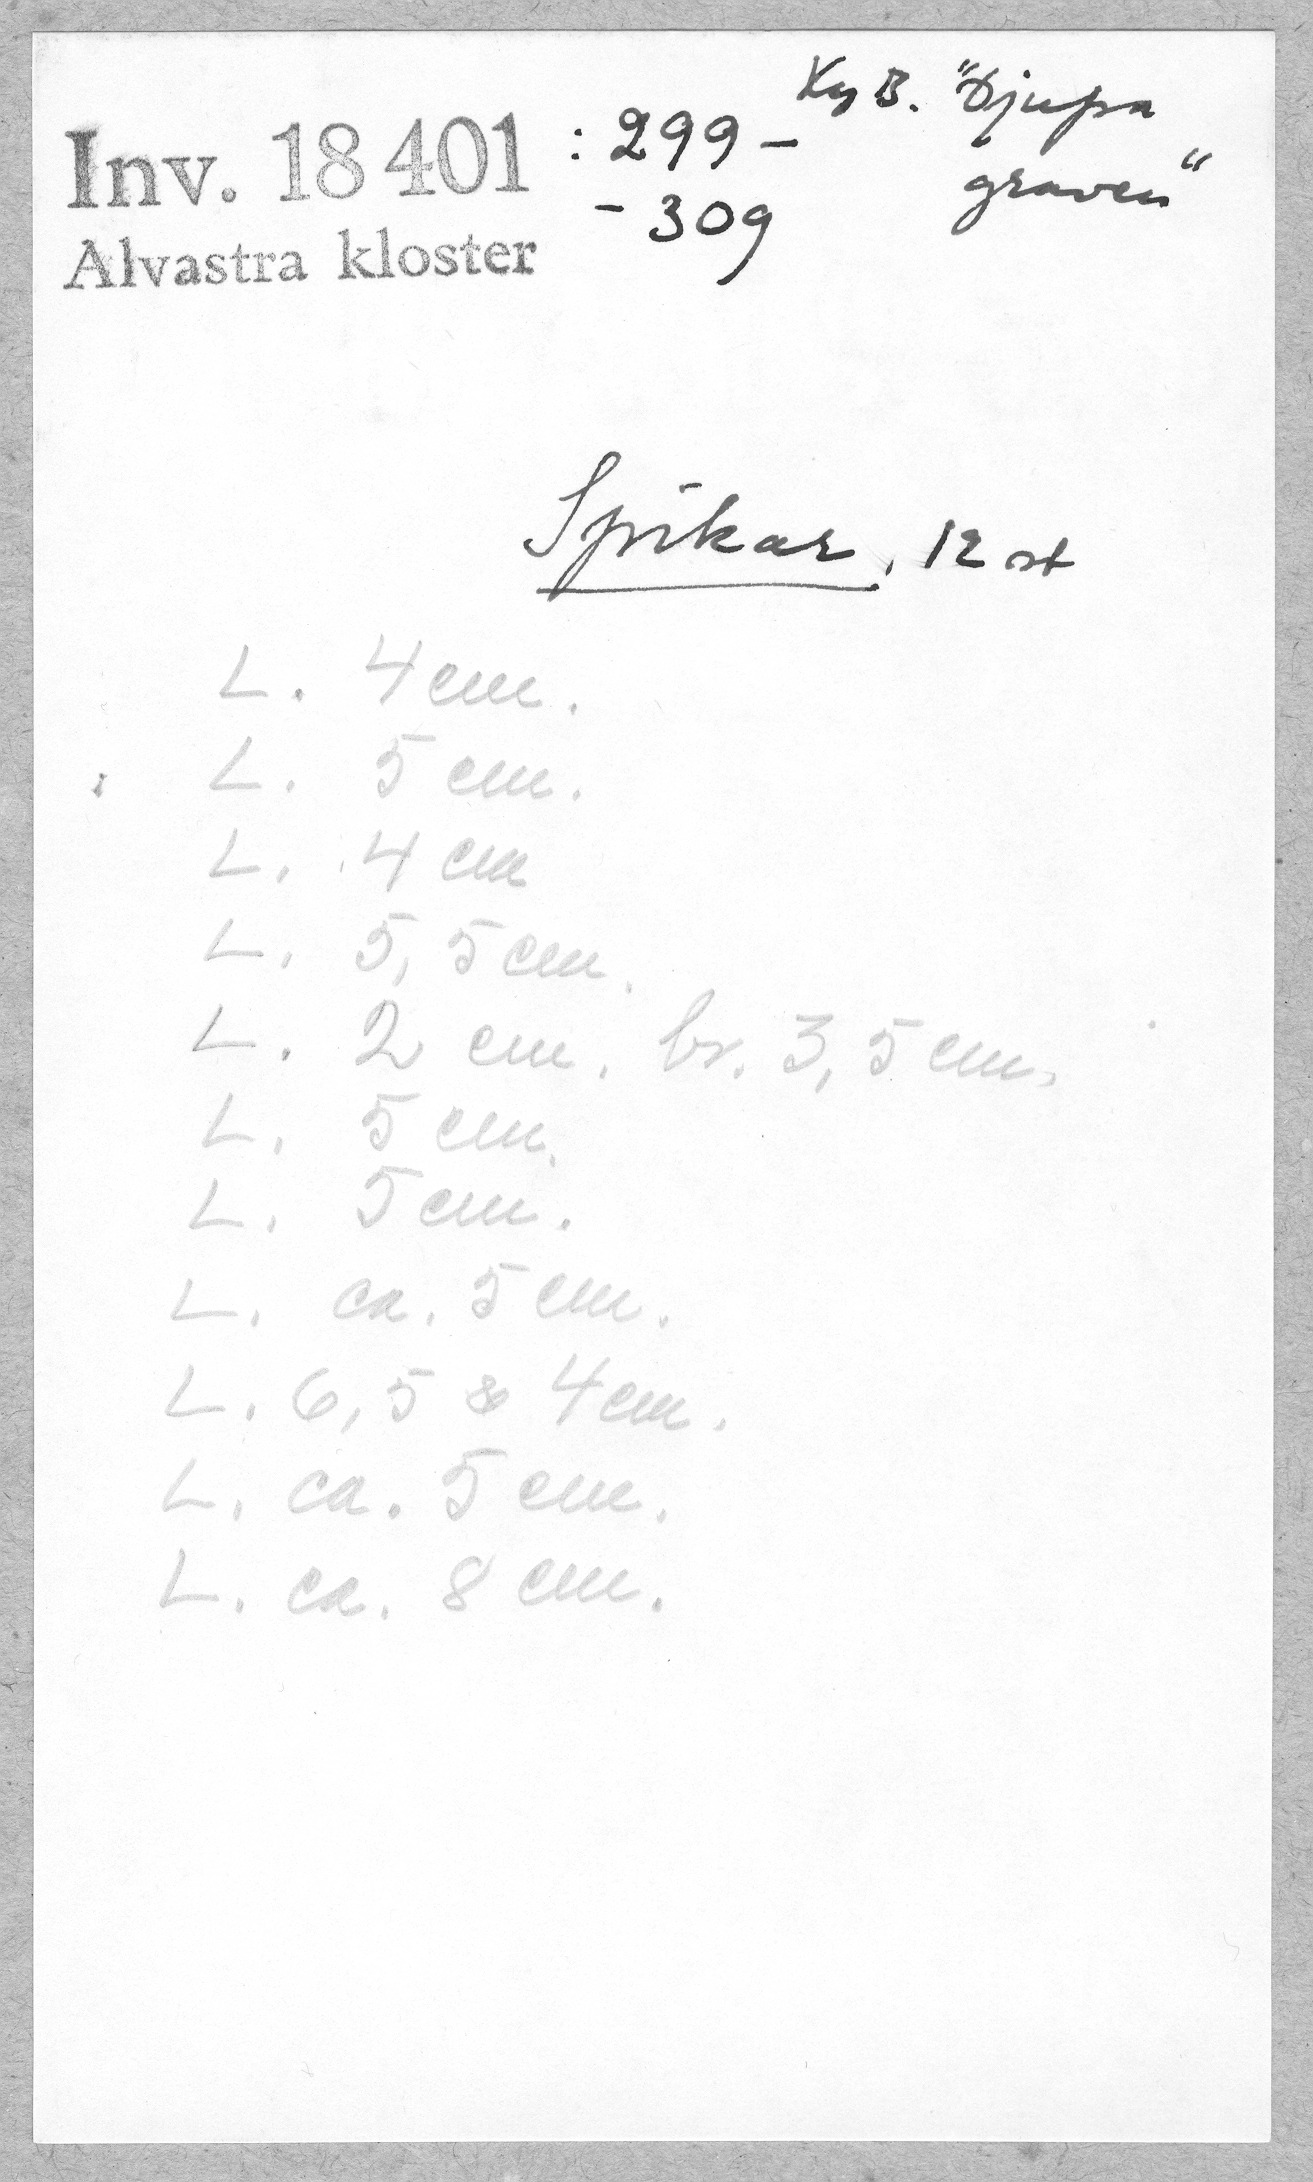 Inv. 18 401 : 299 –
– 309
Ky B. "Djupa
graven"
Alvastra kloster
Spikar, 12 st
L. 4 cm.
L. 5 cm.
L. 4 cm
L. 5,5 cm.
L. 2 cm. br. 3,5 cm.
L. 5 cm.
L. 5 cm.
L. ca. 5 cm.
L. 6,5 & 4 cm.
L. ca. 5 cm.
L. ca. 8 cm.